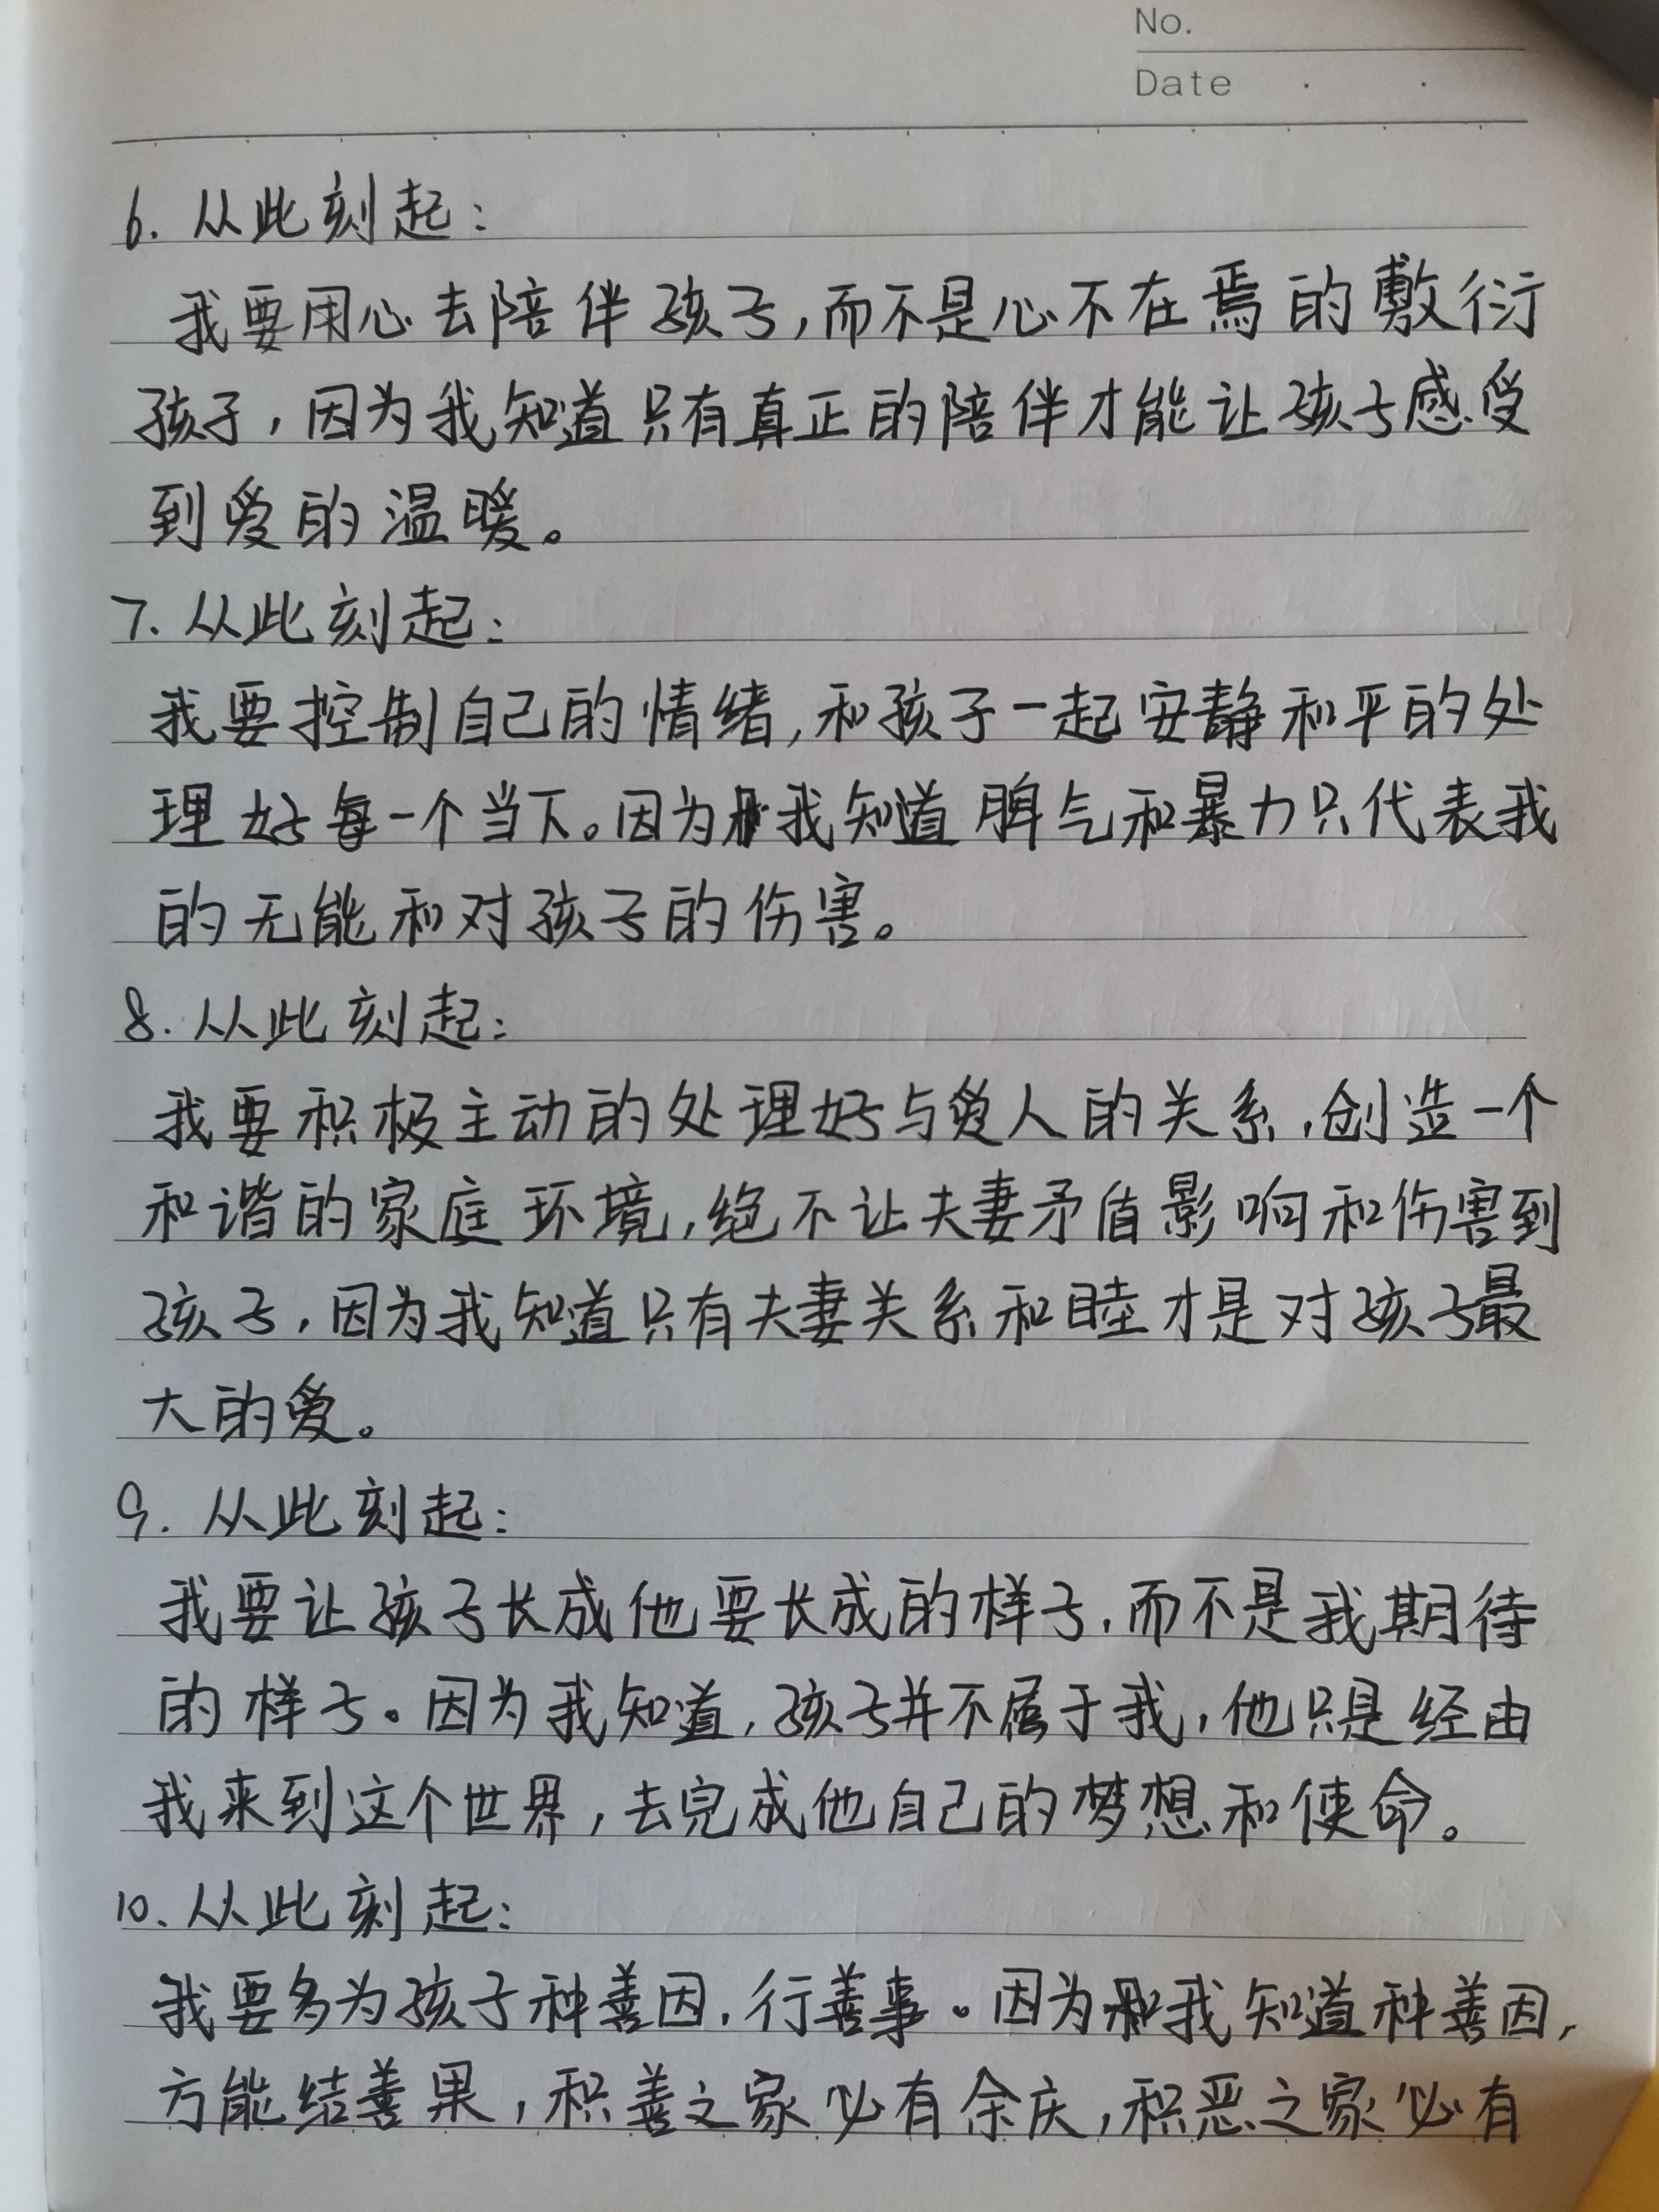 No.
Date
6. 从此刻起：
我要用心去陪伴孩子，而不是心不在焉的敷衍
孩子，因为我知道只有真正的陪伴才能让孩子感受
到爱的温暖。
7. 从此刻起：
我要控制自己的情绪，和孩子一起安静和平的处
理好每一个当下。因为我知道脾气和暴力只代表我
的无能和对孩子的伤害。
8. 从此刻起：
我要积极主动的处理好与爱人的关系，创造一个
和谐的家庭环境，绝不让夫妻矛盾影响和伤害到
孩子，因为我知道只有夫妻关系和睦才是对孩子最
大的爱。
9. 从此刻起：
我要让孩子长成他要长成的样子，而不是我期待
的样子。因为我知道，孩子并不属于我，他只是经由
我来到这个世界，去完成他自己的梦想和使命。
10. 从此刻起：
我要多为孩子种善因，行善事。因为我知道种善因，
方能结善果，积善之家必有余庆，积恶之家必有